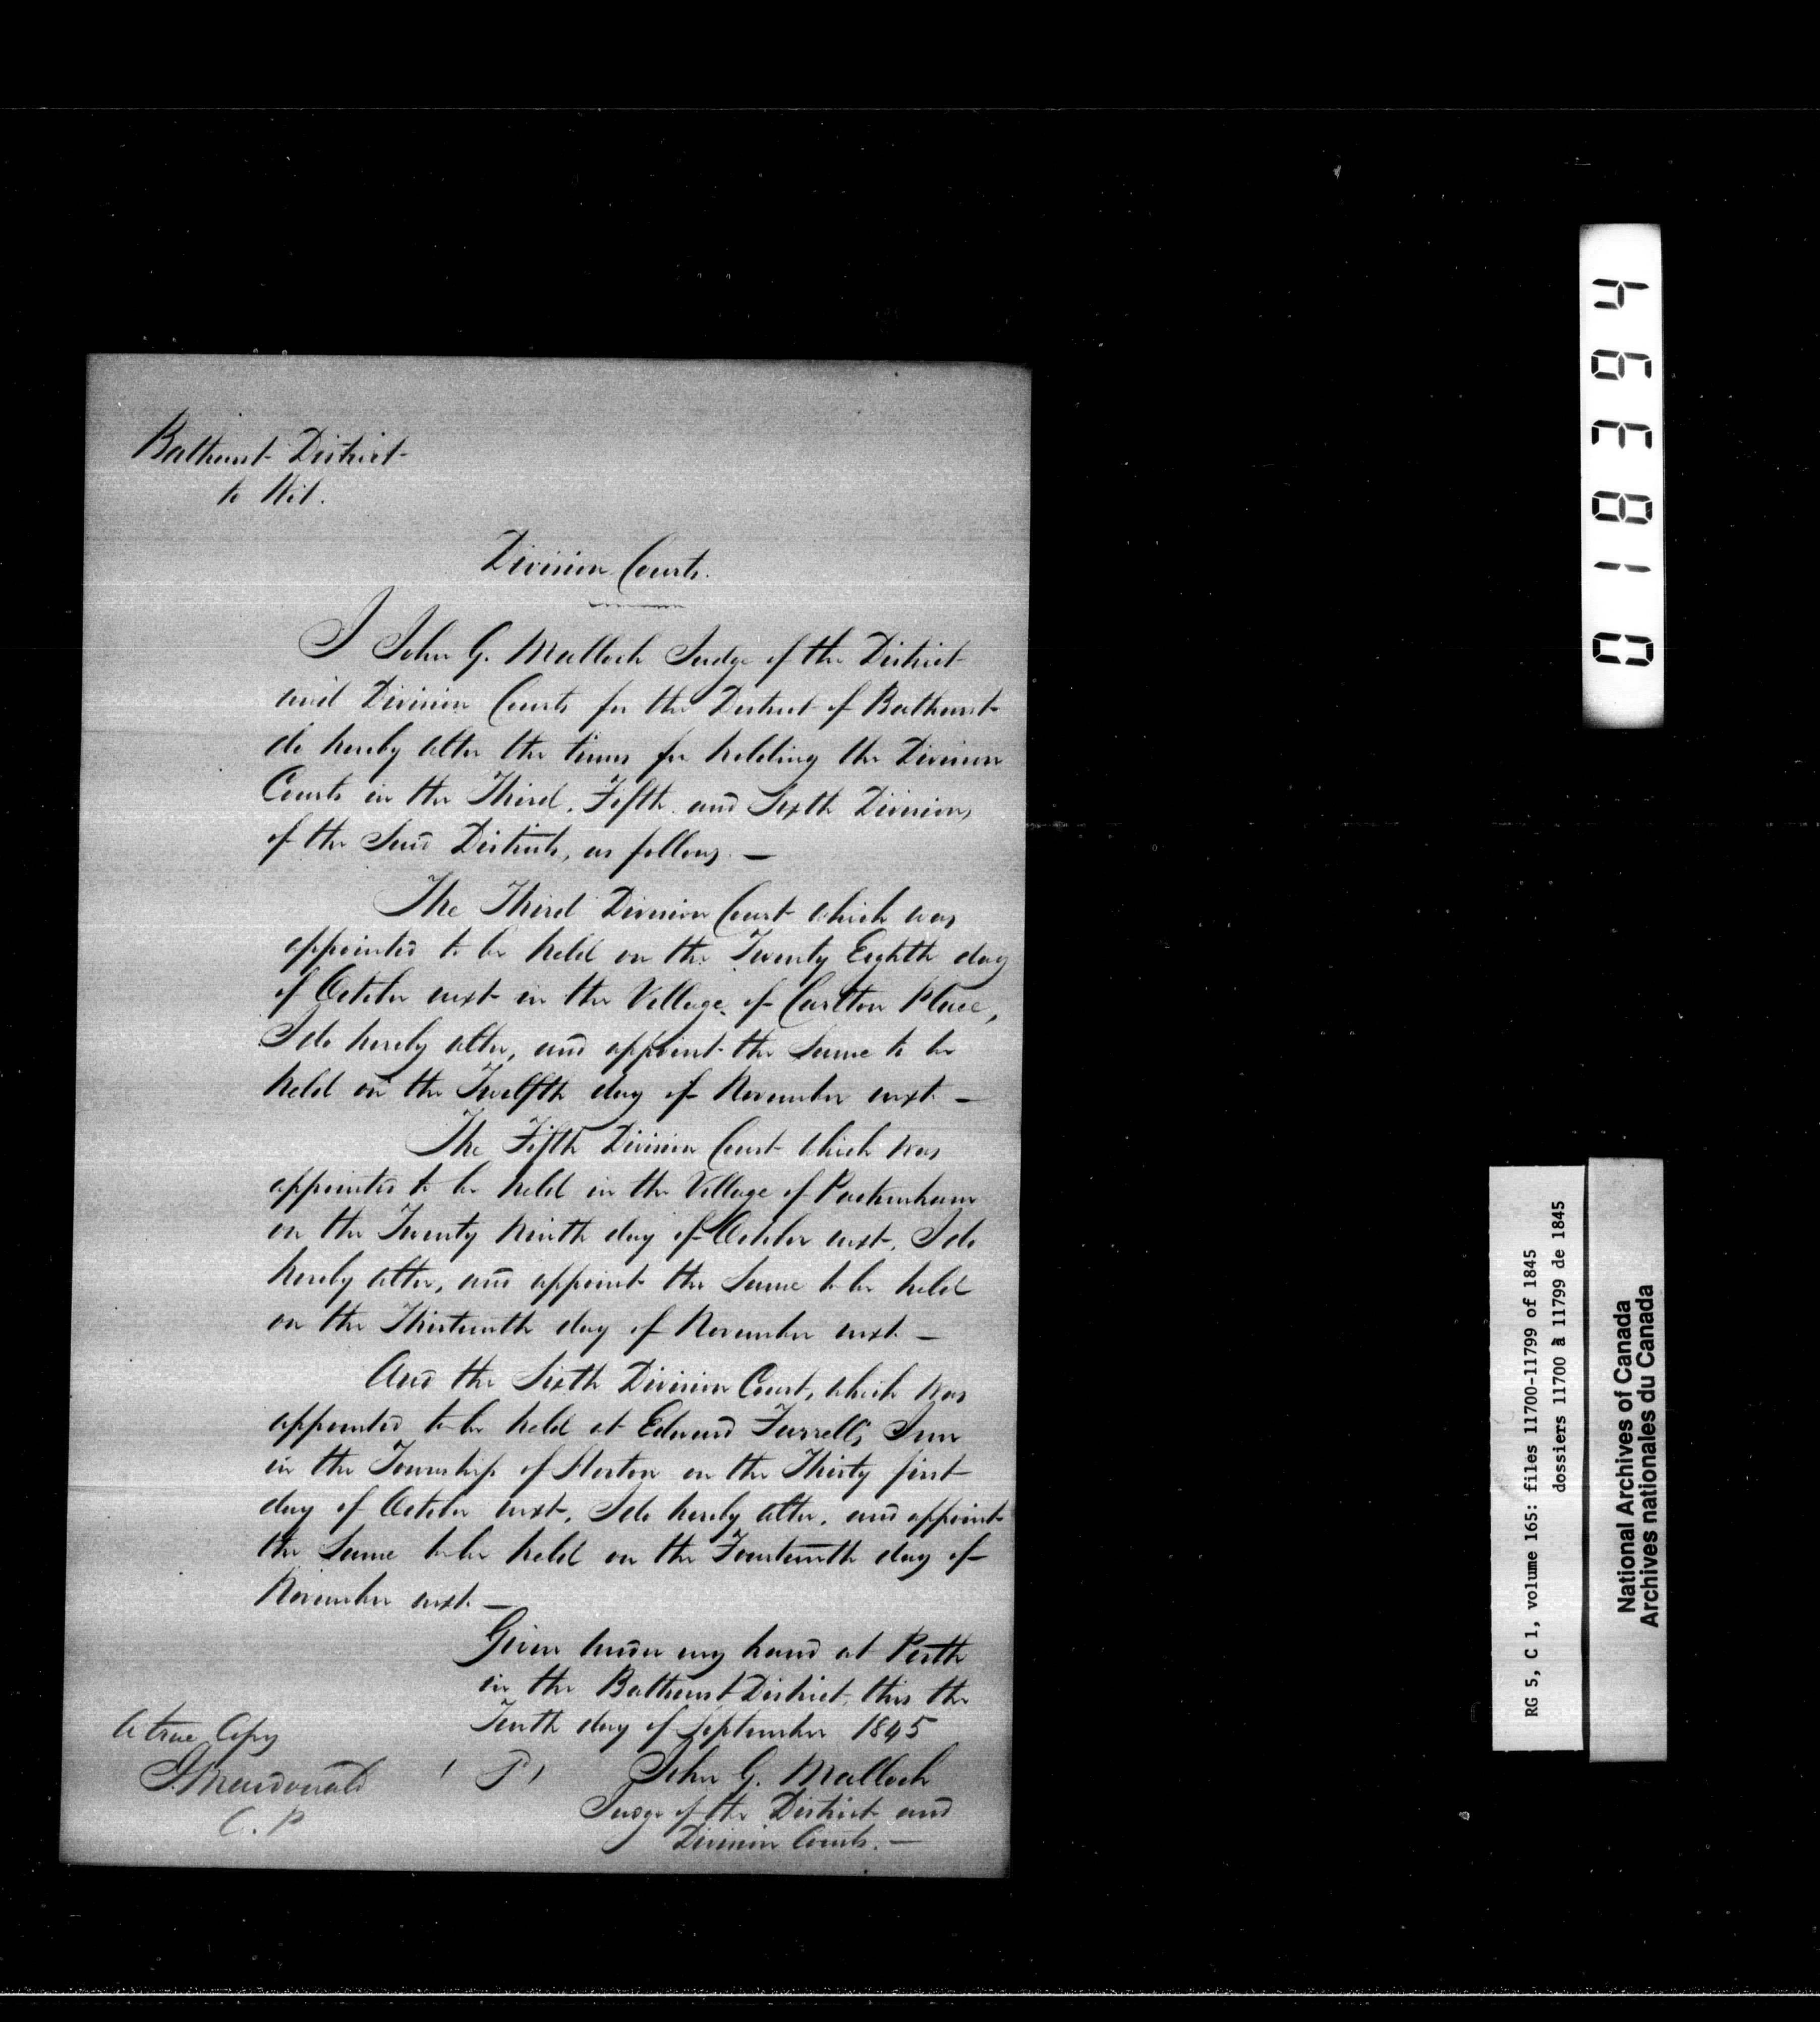 Bathurst District
to Wit.
Division Courts.
I John G. Malloch Judge of the District
and Division Courts for the District of Bathurst
do hereby alter the times for holding the Division
Courts in the Third, Fifth and Sixth Divisions
of the Said District, as follows. —
The Third Division Court which was
appointed to be held on the Twenty Eighth day
of October next in the Village of Carlton Place,
I do hereby alter, and appoint the Same to be
held on the Twelfth day of November next. —
The Fifth Division Court which was
appointed to be held in the Village of Packenham
on the Twenty Ninth day of October next, I do
hereby alter, and appoint the Same to be held
on the Thirteenth day of November next. —
And the Sixth Division Court, which was
appointed to be held at Edward Farrell's Inn
in the Township of Horton on the Thirty first
day of October next, I do hereby alter, and appoint
the Same to be held on the Fourteenth day of
November next. —
Given under my hand at Perth
in the Bathurst District, this the
Tenth day of September 1845
John G. Malloch
Judge of the District and
Division Courts. —
A true Copy
Macdonald
C. P
018394
RG 5, C 1, volume 165: files 11700-11799 of 1845
dossiers 11700 à 11799 de 1845
National Archives of Canada
Archives nationales du Canada